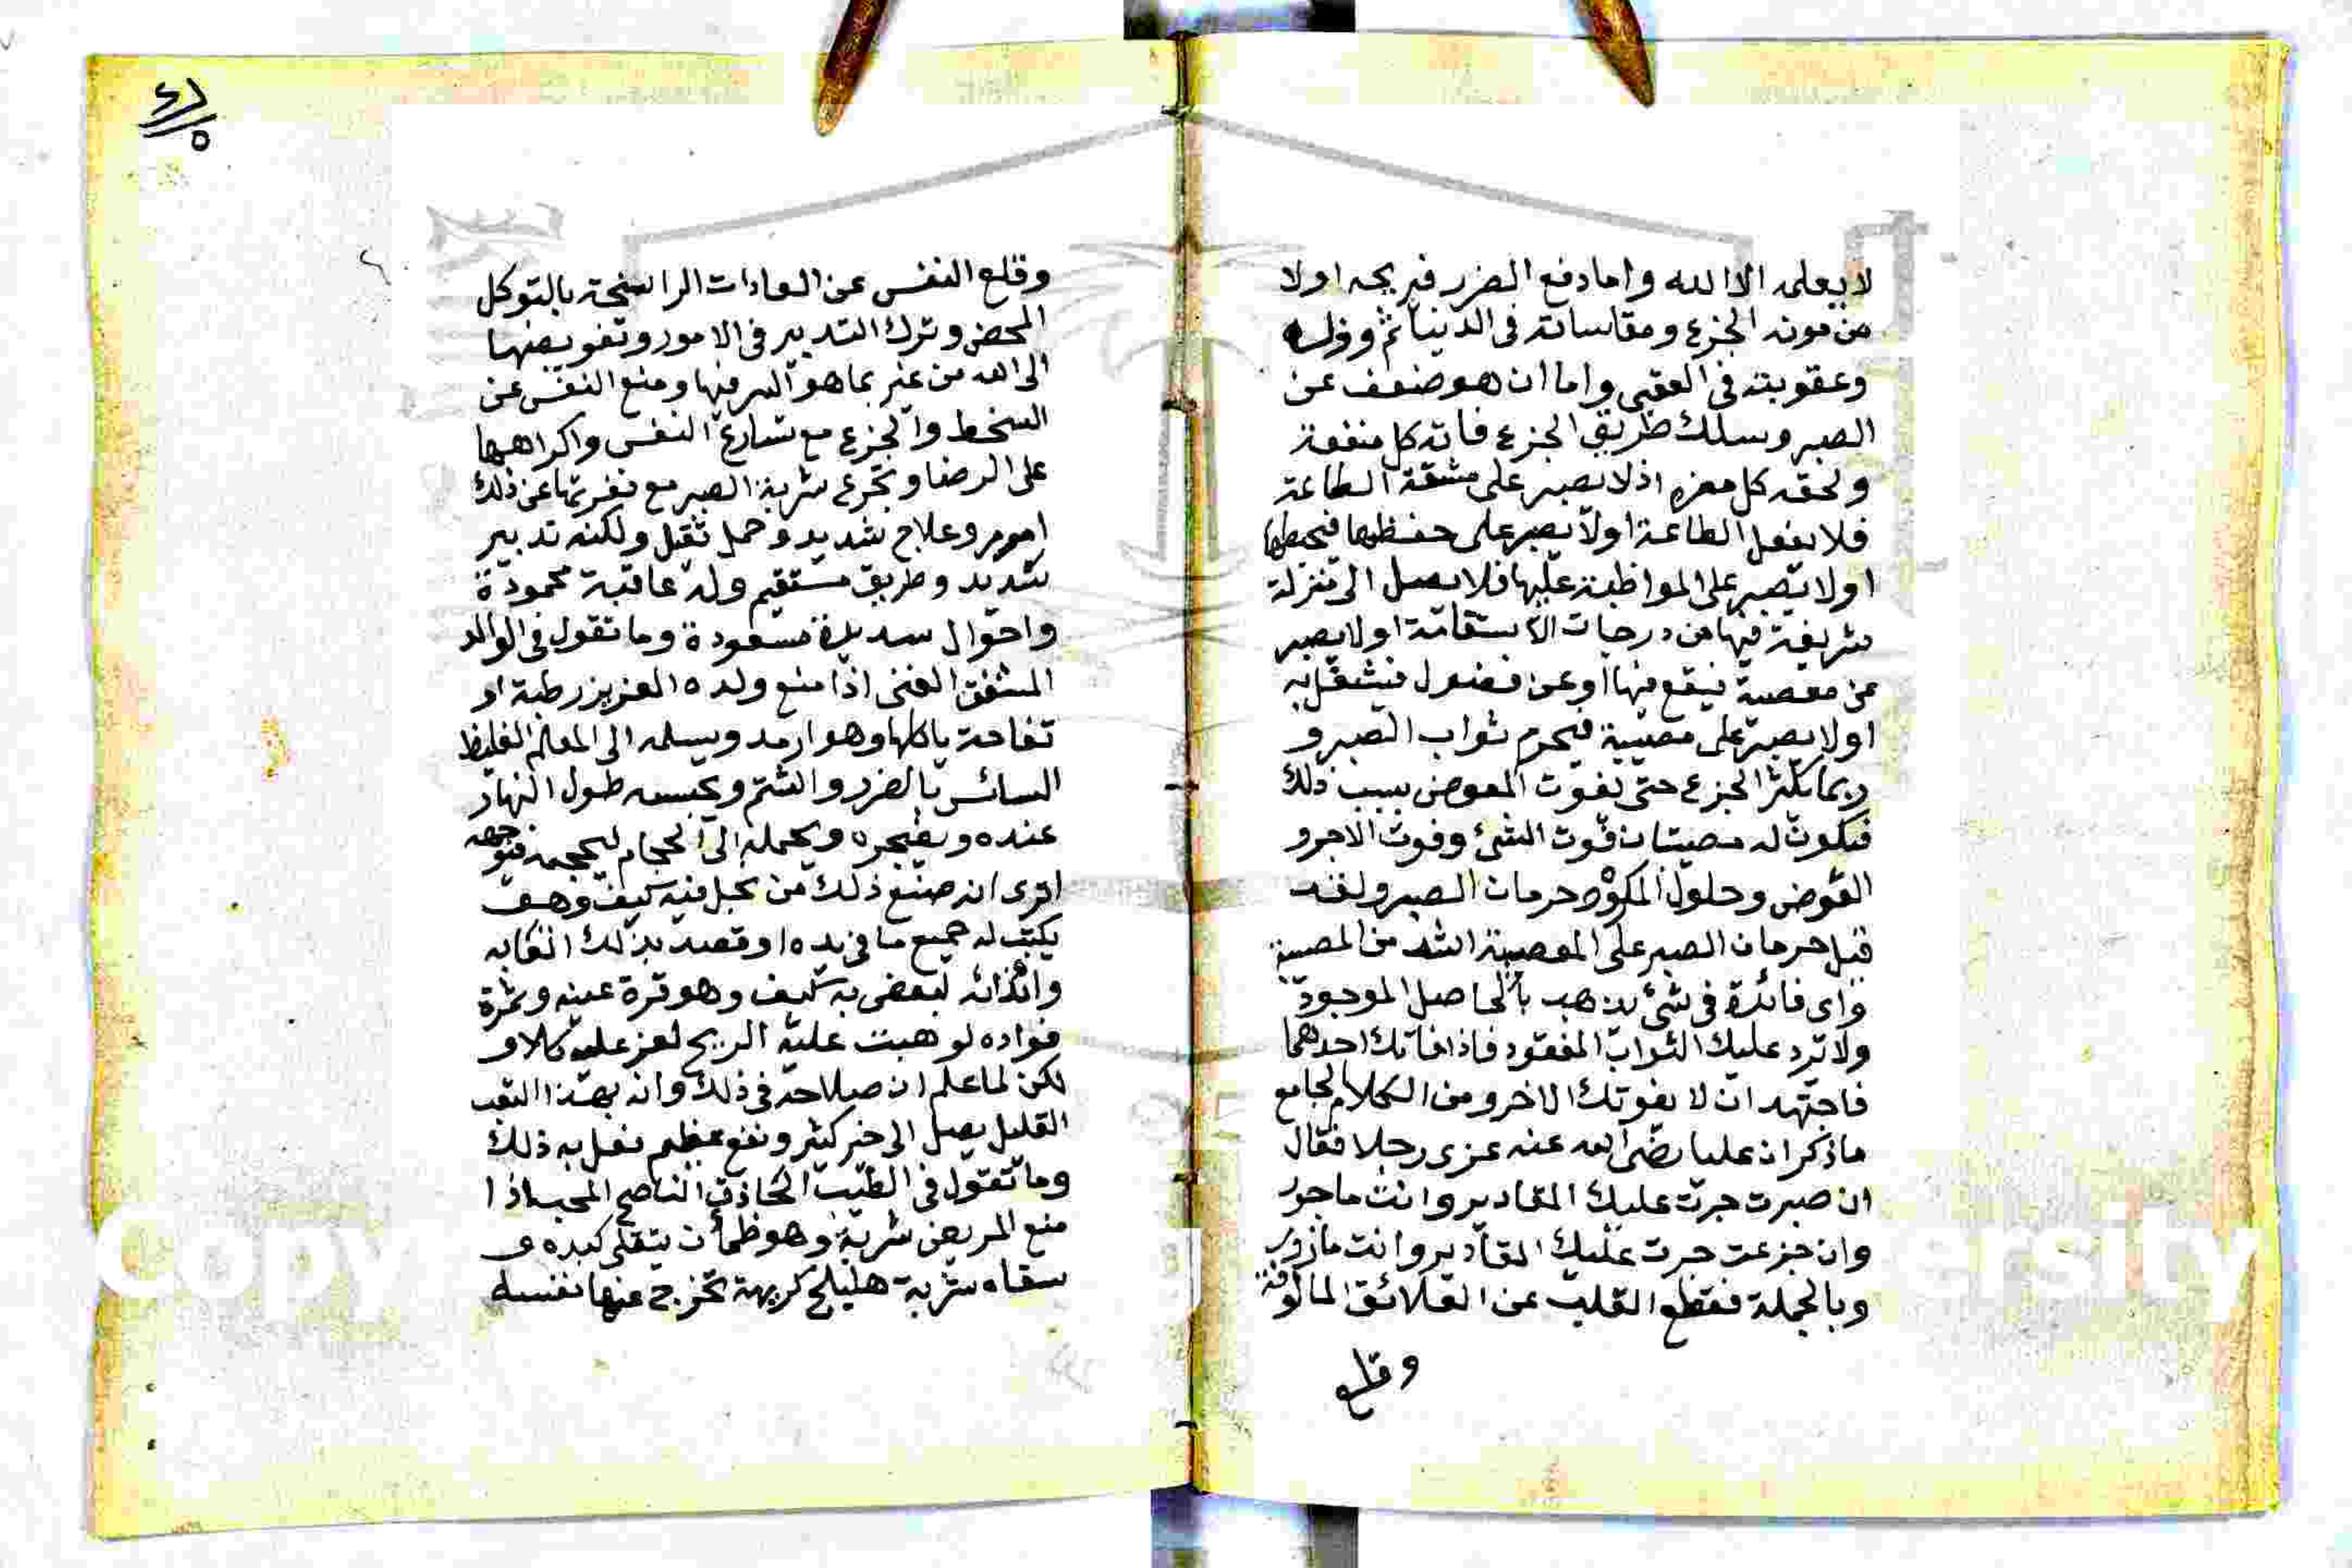 لا يعلمه الا الله واما دفع الضرر فيريحه اولا
من مونة الجزع ومقاساته في الدنيا ثم وزره
وعقوبته في العقبى واما ان هو ضعف عن
الصبر وسلك طريق الجزع فاته كل منفعة
ولحقه كل مضرة اذ لا يصبر على مشقة الطاعة
فلا يفعل الطاعة اولا يصبر على حفظها فيحبطها
اولا يصبر على المواظبة عليها فلا يصل الى منزلة
شريفة فيها من درجات الاستقامة اولا يصبر
عن معصية فيقع فيها او عن فضول فيشتغل به
اولا يصبر على مصيبة فيحرم ثواب الصبر و
ربما يكثر الجزع حتى يفوت العوض بسبب ذلك
فيكون له مصيبتان فوت الشئ وفوت الاجر و
العوض وحلول المكروه وحرمان الصبر ولقد
قيل حرمان الصبر على المصيبة اشد من المصيبة
واى فائدة في شئ يذهب بالحاصل الموجود
ولا ترد عليك الثواب المفقود فاذا فاتك احدهما
فاجتهد ان لا يفوتك الاخر ومن الكلام الجامع
ماذكر ان عليا رضى الله عنه عزى رجلا فقال
ان صبرت جرت عليك المقادير وانت ماجور
وان جزعت جرت عليك المقادير وانت مازور
وبالجملة فقطع القلب عن العلائق المالوفة
وقلع
٤٦
٥
وقلع النفس عن العادات الراسخة بالتوكل
المحض وترك التدبير في الامور وتفويضها
الى الله من غير بما هو السر فيها ومنع النفس عن
السخط والجزع مع تسارع النفس واكراهها
على الرضا وتجرع شربة الصبر مع نفرتها عن ذلك
امر وعلاج شديد وحمل ثقيل ولكنه تدبير
شديد وطريق مستقيم وله عاقبة محمودة
واحوال سديدة مسعودة وما تقول في الوالد
المشفق الغنى اذا منع ولده العزيز رطبة او
تفاحة ياكلها وهو ارمد ويسلمه الى المعلم الغليظ
السائس بالضرر والشتم ويحبسه طول النهار
عنده ويضجره ويحمله الى الحجام ليحجمه فيوجعه
اترى انه صنع ذلك من بخل فيه كيف وهو
يكتب له جميع ما في يده او قصد بذلك اتعابه
وايذائه لبغض به كيف وهو قرة عينه وثمرة
فواده لو هبت عليه الريح لعز عليه كلا و
لكن لما علم ان صلاحه في ذلك وان بهذا التعب
القليل يصل الى خير كثير ونفع عظيم فعل به ذلك
وما تقول في الطبيب الحاذق الناصح المحب اذا
منع المريض شربة وهو ظمأن يتقلى كبده و
سقاه شربة هليلج كريهة تخرج عنها نفسه
Copy
rsity